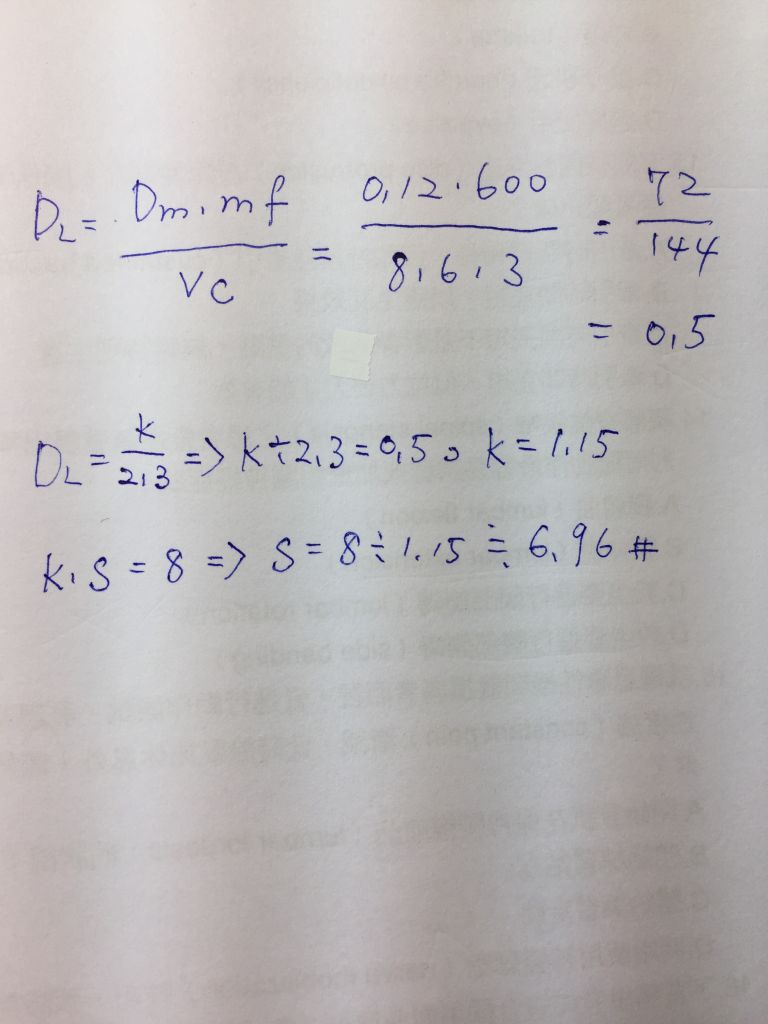 D_L = Dm·mf / VC = 0.12·600 / 8·6·3 = 72 / 144
= 0.5
D_L = k / 2.3 => k÷2.3=0.5。 k=1.15
k·S = 8 => S = 8÷1.15 ≒ 6.96 #